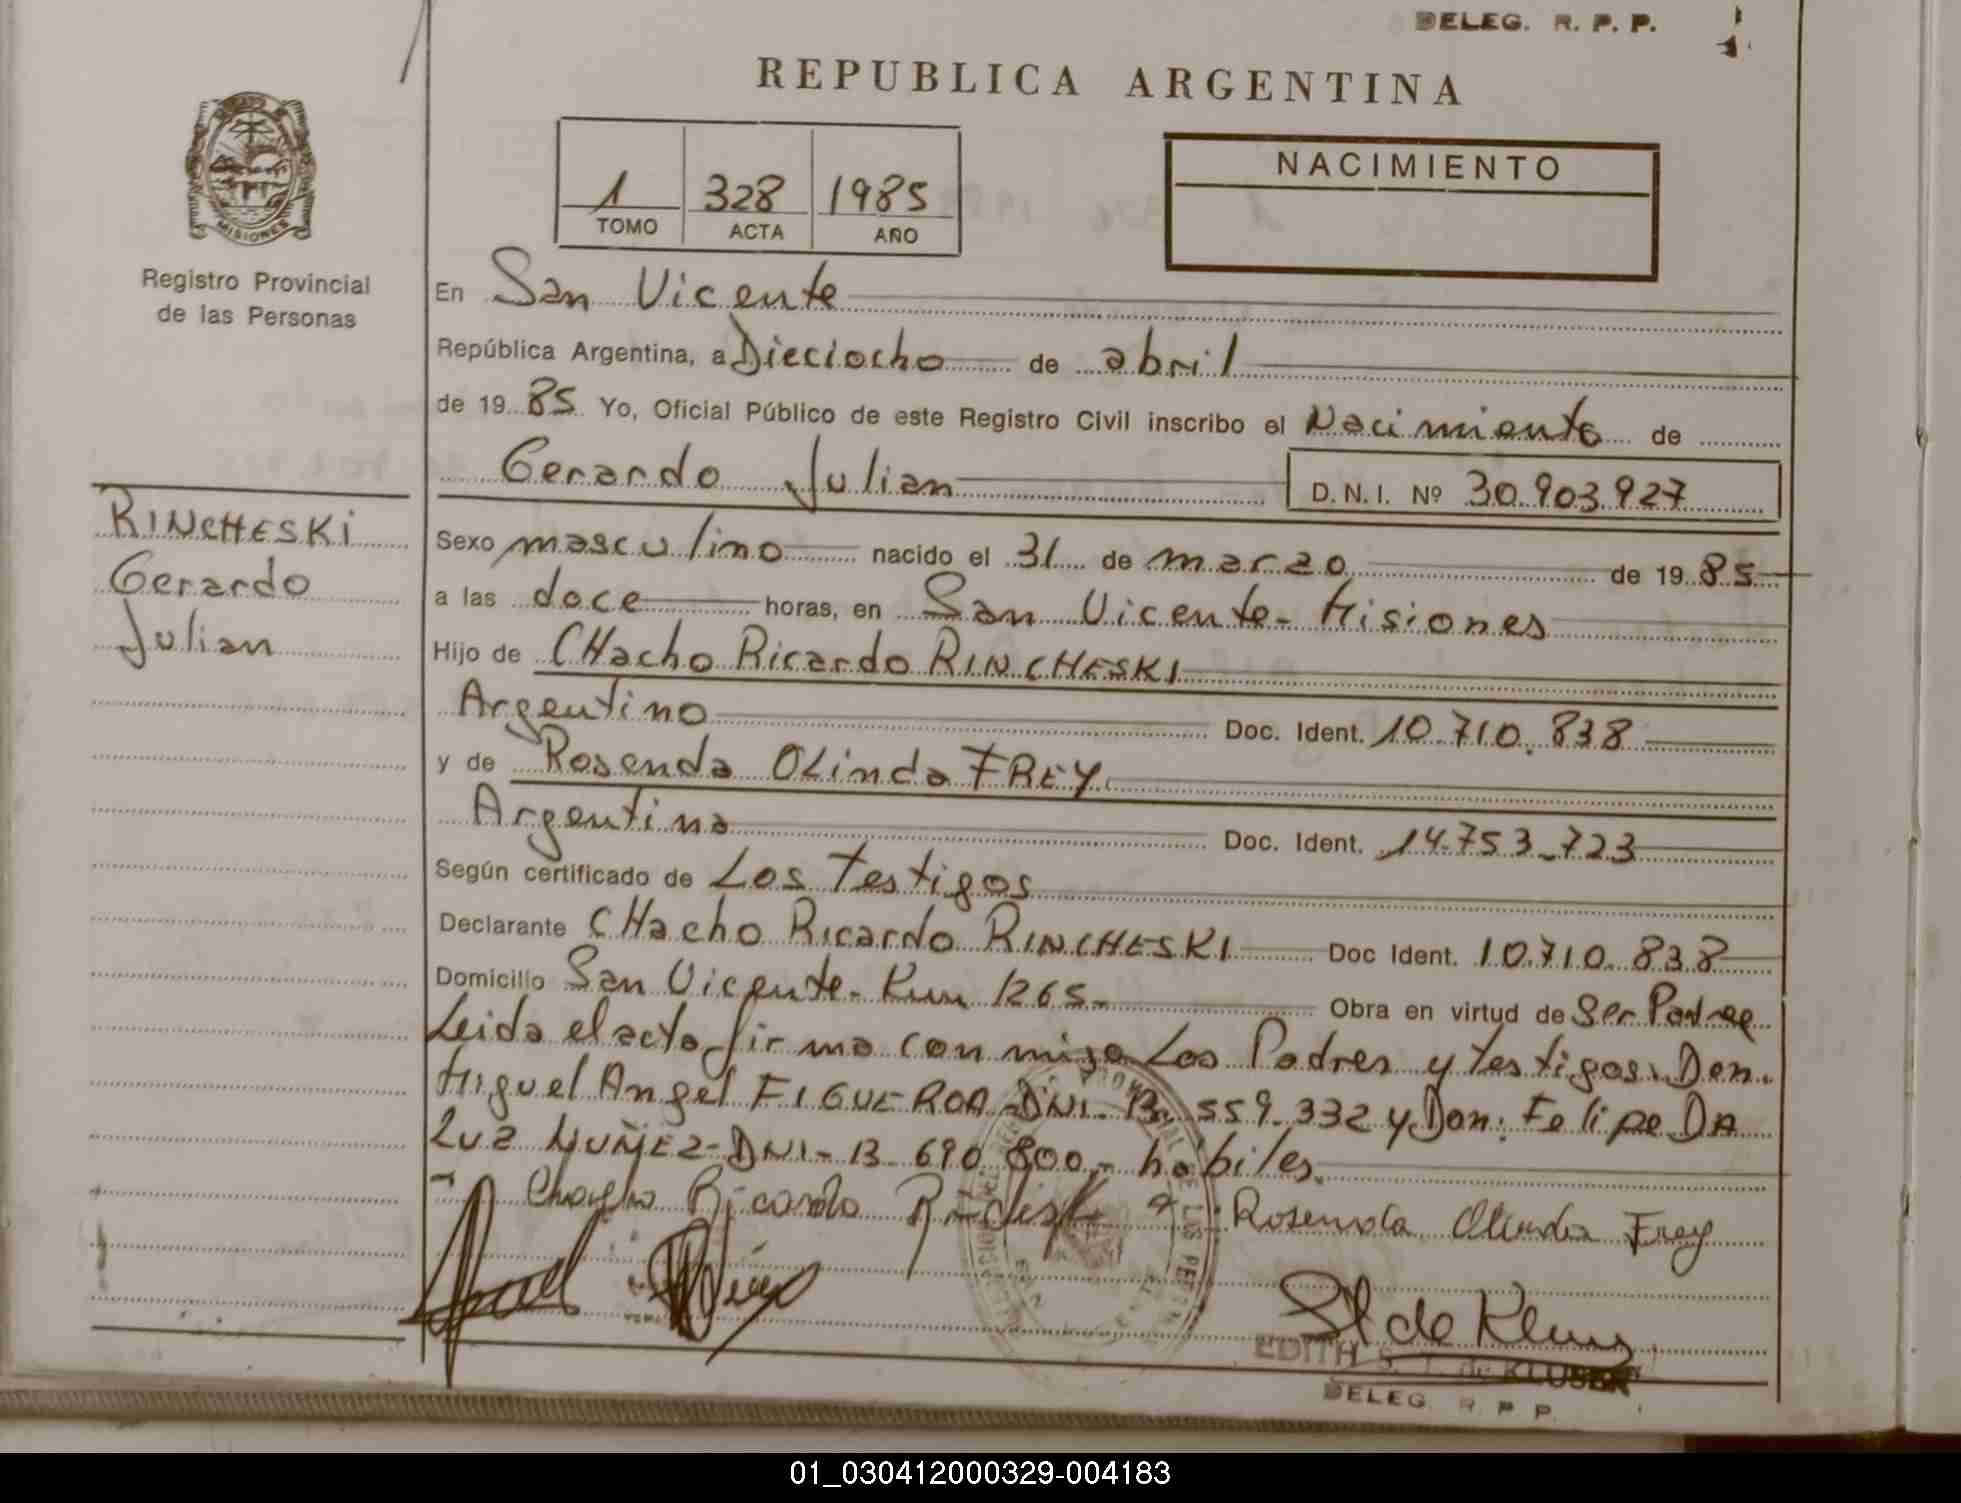 DELEG. R. P. P.
REPUBLICA ARGENTINA
1 328 1985
TOMO ACTA AÑO
NACIMIENTO
MISIONES
Registro Provincial
de las Personas
En San Vicente
República Argentina, a Dieciocho de abril
de 19 85 Yo, Oficial Público de este Registro Civil inscribo el Nacimiento de
Gerardo Julian
D. N. I. Nº 30.903.927
RINCHESKI
Gerardo
Julian
Sexo masculino nacido el 31 de marzo de 19 85
a las doce horas, en San Vicente - Misiones
Hijo de CHacho Ricardo RINCHESKI
Argentino Doc. Ident. 10.710.838
y de Rosenda OLinda FREY
Argentina Doc. Ident. 14.753.723
Según certificado de Los Testigos
Declarante CHacho Ricardo RINCHESKI Doc Ident. 10.710.838
Domicilio San Vicente - Km 1265 - Obra en virtud de Ser Padre
Leida el acta firma con migo Los Padres y testigos. Don.
Miguel Angel FIGUEROA - DNI - 13.559.332 y Don: Felipe DA
Luz NUÑEZ - DNI - 13.690.800 - habiles.
Ricardo Rosenda Olinda Frey
de
EDITH S. T. de KLUSER
DELEG. R. P. P.
01_030412000329-004183